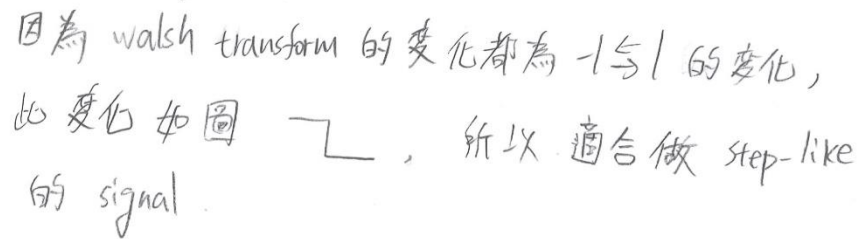 因為 walsh transform 的變化都為 -1⇆1 的變化,
此變化如圖 , 所以適合做 step-like
的 signal.